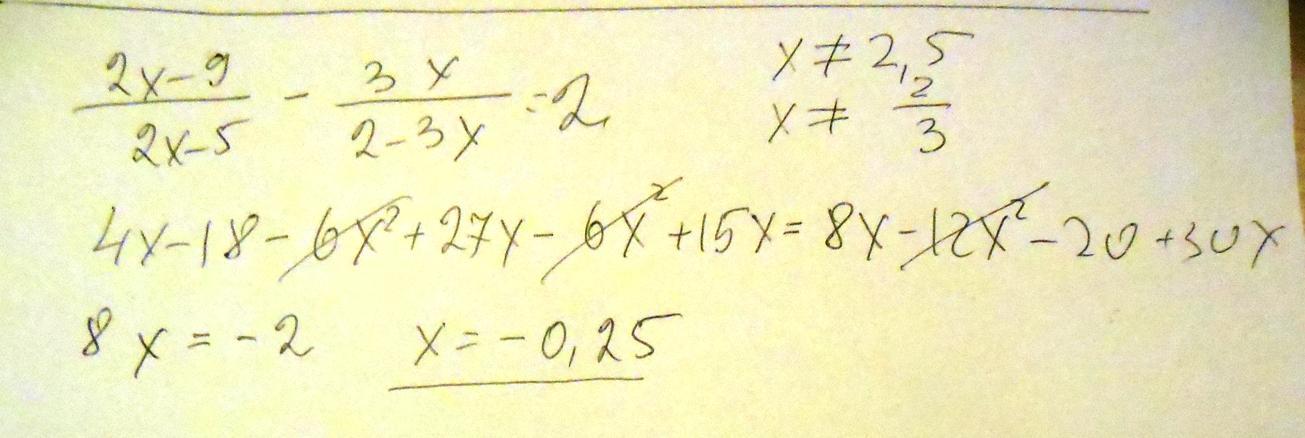 (2x-9)/(2x-5) - (3x)/(2-3x) = 2 x ≠ 2,5
x ≠ 2/3
4x-18-6x²+27x-6x²+15x=8x-12x²-20+30x
8x=-2 x=-0,25